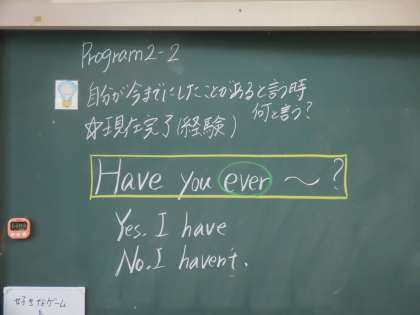 Program2-2
自分が今までにしたことがあると言う時
何と言う?
☆現在完了(経験)
Have you ever ~ ?
Yes. I have
No. I haven't.
好きなゲーム